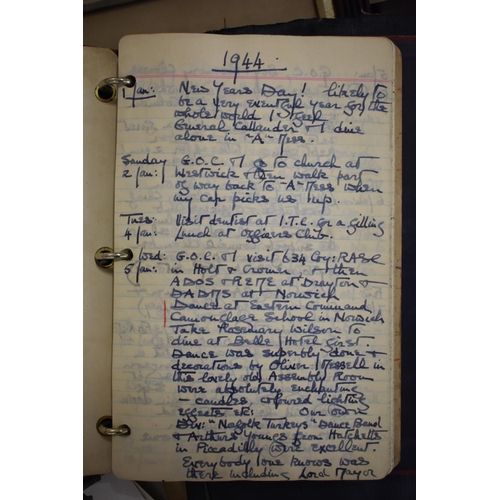 1944.
1 Jan: New Years Day! likely to
be a very eventful year for the
whole world I feel
General Callander & I dine
alone in "A" Mess.
Sunday G.O.C. & I go to church at
2 Jan: Westwick & then walk part
of way back to "A" Mess when
my car picks us up.
Tues: Visit dentist at I.T.C. for a filling
4 Jan: Lunch at Officers Club.
Wed: G.O.C. & I visit 634 Coy: RASC
5 Jan: in Holt & Cromer, & then
ADOS & REME at Drayton &
DADMS at Norwich
Dance at Eastern Command
Camouflage School in Norwich
Take Rosemary Wilson to
dine at Bell Hotel first.
Dance was superbly done &
decorations by Oliver Messell in
this lovely old Assembly Room
were absolutely enchanting
– candles & flowered lighting
effects etc: Our own
Div: "Norfolk Turkeys" Dance Band
& Arthur Youngs from Hatchetts
in Picadilly were excellent.
Everybody one knows was
there including Lord Mayor